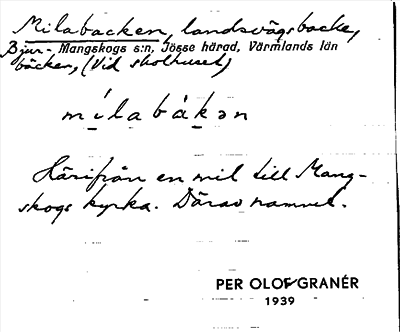 Milabacken, landsvägsbacke,
Bjur- Mangskogs s:n, Jösse härad, Värmlands län
bäcken, (Vid skolhuset)
mílabákən
Härifrån en mil till Mang-
skogs kyrka. Därav namnet.
PER OLOF GRANÉR
1939